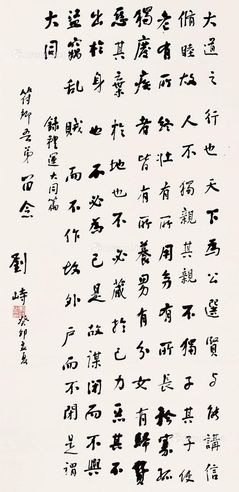 大道之行也天下為公選賢与能講信
脩睦故人不獨親其親不獨子其子使
老有所終壯有所用幼有所長矜寡孤
獨廢疾者皆有所養男有分女有歸貨
惡其棄於地也不必藏於己力惡其不
出於身也不必為己是故謀閉而不興
盜竊乱賊而不作故外戶而不閉是謂
大同
錄禮運大同篇
符卿吾弟留念
劉峙
癸卯孟夏